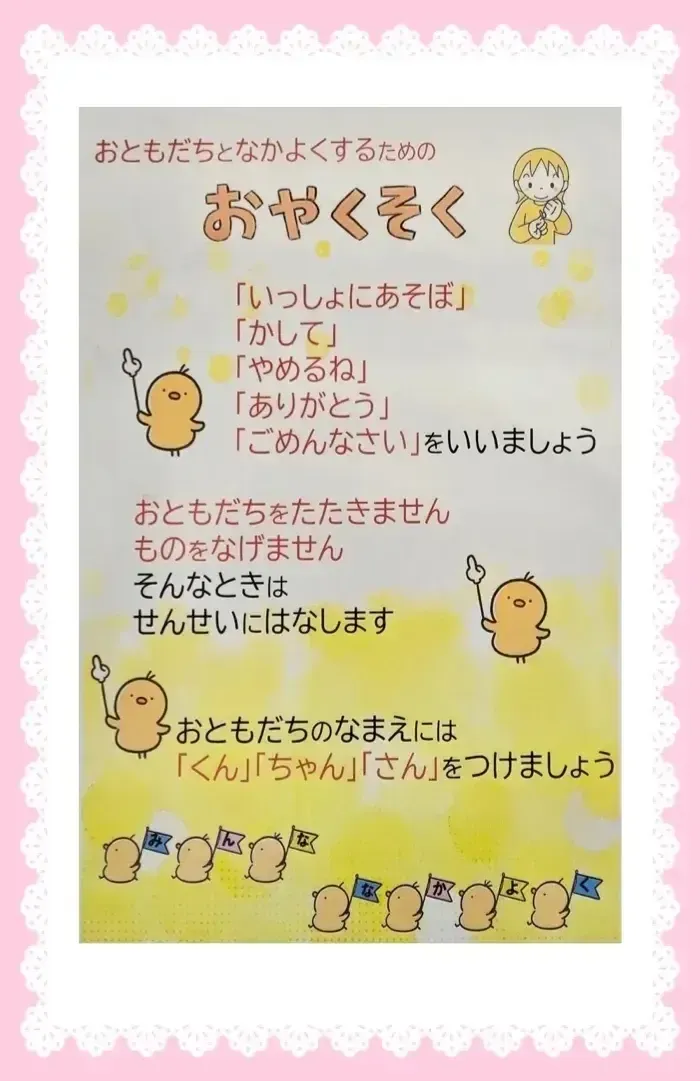 おともだちとなかよくするための
おやくそく
「いっしょにあそぼ」
「かして」
「やめるね」
「ありがとう」
「ごめんなさい」をいいましょう
おともだちをたたきません
ものをなげません
そんなときは
せんせいにはなします
おともだちのなまえには
「くん」「ちゃん」「さん」をつけましょう
みんな
なかよく